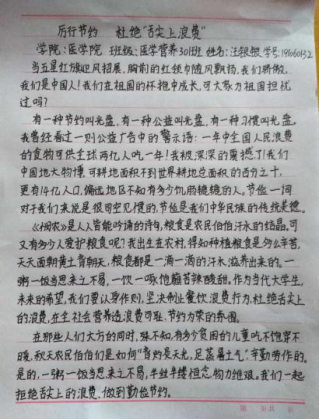 厉行节约 杜绝“舌尖上浪费”
学院:医学院 班级:医学营养301班 姓名:汪银银 学号:19660132
当五星红旗迎风招展,胸前的红领巾随风飘扬,我们骄傲
我们是中国人!我们在祖国的怀抱中成长,可大家为祖国担忧
过吗?
有一种节约叫光盘,有一种公益叫光盘,有一种习惯叫光盘。
我曾经看过一则公益广告中的警示语:一年中全国人民浪费
的食物可供全球两亿人吃一年!我被深深的震撼了!我们
中国地大物博,可耕地面积不到世界耕地总面积的百分之十,
更有14亿人口,偏远地区不知有多少饥肠辘辘的人。节俭一词
对于我们来说是很司空见惯的,节俭是我们中华民族的传统美德。
《悯农》是人人皆能吟诵的诗句,粮食是农民伯伯汗水的结晶,可
又有多少人爱护粮食呢?我出生在农村,得知种植粮食是多么辛苦,
天天面朝黄土背朝天,粮食都是一滴一滴的汗水滋养出来的。一
粥一饭当思来之不易,一饮一啄饱蘸苦辣酸甜,作为当代大学生,
未来的希望,我们要以身作则,坚决制止餐饮浪费行为,杜绝舌尖上
的浪费,在全社会营造浪费可耻、节约为荣的氛围。
在那些人们大方的同时,殊不知,有多少贫困的儿童吃不饱穿不
暖,秋天农民伯伯们是如何“背灼炎天光,足蒸暑土气”,辛勤劳作的,
是的,一粥一饭当思来之不易,半丝半缕恒念物力维艰。我们一起
拒绝舌尖上的浪费,做到勤俭节约。